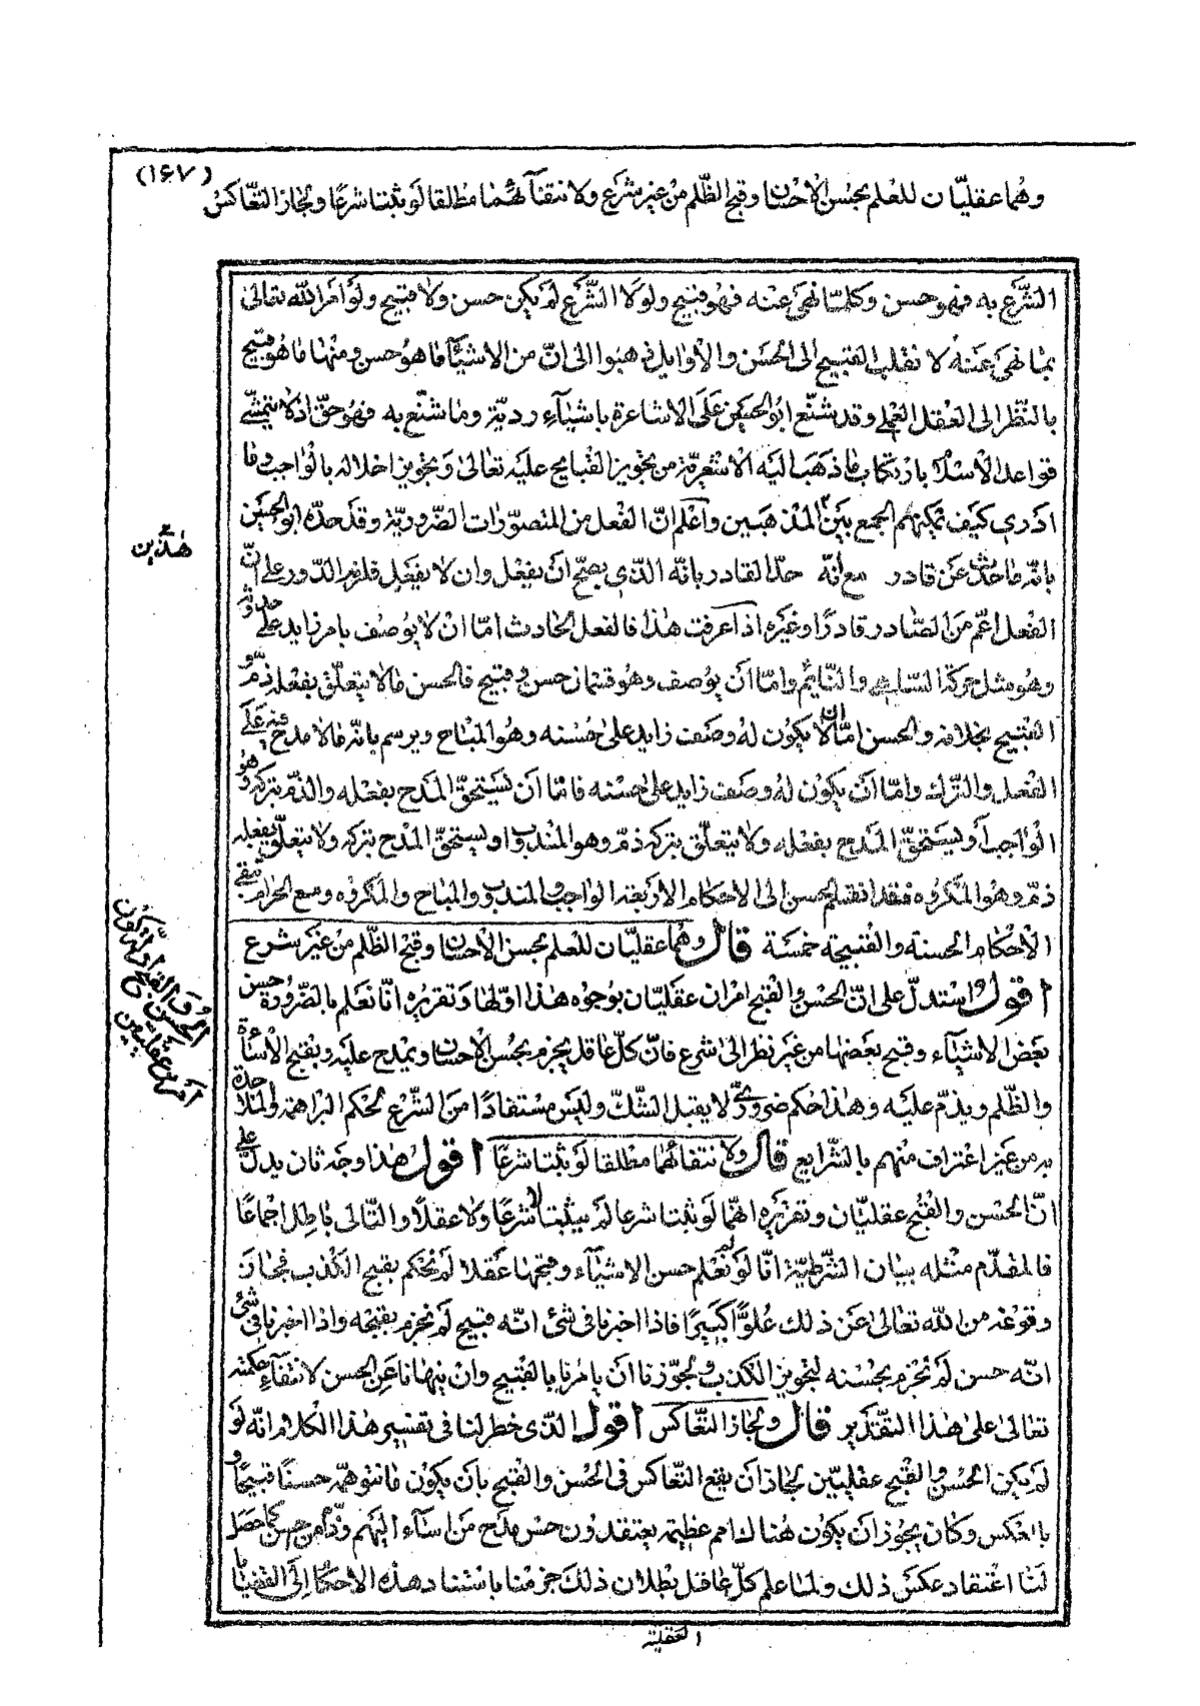 (١٦٧)
وهما عقليّان للعلم بحسن الاحسان وقبح الظّلم من غير شرع ولانتفآئهما مطلقا لو ثبتا شرعًا ولجاز التّعاكس
الشّرع به فهو حسن وكلّما نهى عنه فهو قبيح ولولا الشّرع لم يكن حسن ولا قبيح ولو امر الله تعالى
بما نهى عنه لانقلب القبيح الى الحسن والاوايل ذهبوا الى انّ من الاشيآء ما هو حسن ومنها ما هو قبيح
بالنّظر الى العقل العملي وقد شنّع ابو الحسين على الاشاعرة باشيآء رديّة وما شنّع به فهو حقّ اذ لا يتمشّى
قواعد الاسلام بارتكاب ما ذهب اليه الاشعريّة من تجويز القبايح عليه تعالى وتجويز اخلاله بالواجب وما
ادري كيف يمكنهم الجمع بين المذهبين واعلم انّ الفعل من المتصوّرات الضّروريّة وقد حدّه ابو الحسين
بانّه ما حدث عن قادر مع انّه حدّ القادر بانّه الذّي يصحّ ان يفعل وان لا يفعل فلزم الدّور على انّ
هذين
الفعل اعمّ من الصّادر قادرًا وغيره اذا عرفت هذا فالفعل الحادث امّا ان لا يوصف بامر زايد على حدوثه
وهو مثل حركة السّاهي والنّايم وامّا ان يوصف وهو قسمان حسن وقبيح فالحسن ما لا يتعلّق بفعله ذمّ و
القبيح بخلافه والحسن امّا ان لا يكون له وصف زايد على حسنه وهو المباح ويرسم بانّه ما لا مدح فيه على
الفعل والتّرك وامّا ان يكون له وصف زايد على حسنه فامّا ان يستحقّ المدح بفعله والذّم بتركه وهو
الواجب او يستحقّ المدح بفعله ولا يتعلّق بتركه ذمّ وهو المندوب او يستحقّ المدح بتركه ولا يتعلّق بفعله
ذمّ وهو المكروه فقد انقسم الحسن الى الاحكام الاربعة الواجب والمندوب والمباح والمكروه ومع الحرام تبقى
الاحكام الحسنة والقبيحة خمسة قال وهما عقليّان للعلم بحسن الاحسان وقبح الظّلم من غير شرع
اقول استدلّ على انّ الحسن والقبح امران عقليّان بوجوه هذا اوّلها وتقريره انّا نعلم بالضّرورة حسن
بعض الاشيآء وقبح بعضها من غير نظر الى شرع فانّ كلّ عاقل يجزم بحسن الاحسان ويمدح عليه وبقبح الاسآءة
والظّلم ويذمّ عليه وهذا حكم ضروريّ لا يقبل الشّك وليس مستفادًا من الشّرع لحكم البراهمة والملاحدة
به من غير اعتراف منهم بالشّرايع قال ولانتفائهما مطلقا لو ثبتا شرعًا اقول هذا وجه ثان يدلّ على
انّ الحسن والقبح عقليّان وتقريره انّهما لو ثبتا شرعا لم يثبتا لا شرعًا ولا عقلًا والتّالى باطل اجماعًا
فالمقدّم مثله بيان الشّرطيّة انّا لو لم نعلم حسن الاشيآء وقبحها عقلا لم نحكم بقبح الكذب فجاز
وقوعه من الله تعالى عن ذلك علوًّا كبيرًا فاذا اخبرنا فى شئ انّه قبيح لم نجزم بقبحه واذا اخبرنا فى شئ
انّه حسن لم نجزم بحسنه لتجويز الكذب ولجوّزنا ان يامرنا بالقبيح وان ينهانا عن الحسن لانتفآء حكمته
تعالى على هذا التقدير قال ولجاز التّعاكس اقول الذّى خطر لنا فى تفسير هذا الكلام انّه لو
لم يكن الحسن والقبح عقليّين لجاز ان يقع التّعاكس فى الحسن والقبح بان يكون ما نتوهّمه حسنًا قبيحًا و
بالعكس وكان يجوز ان يكون هناك امم عظيمة يعتقدون حسن مدح من اسآء اليهم وذمّ من احسن كما حصل
لنا اعتقاد عكس ذلك ولمّا علم كلّ عاقل بطلان ذلك جزمنا باستناد هذه الاحكام الى القضايا
العقلية